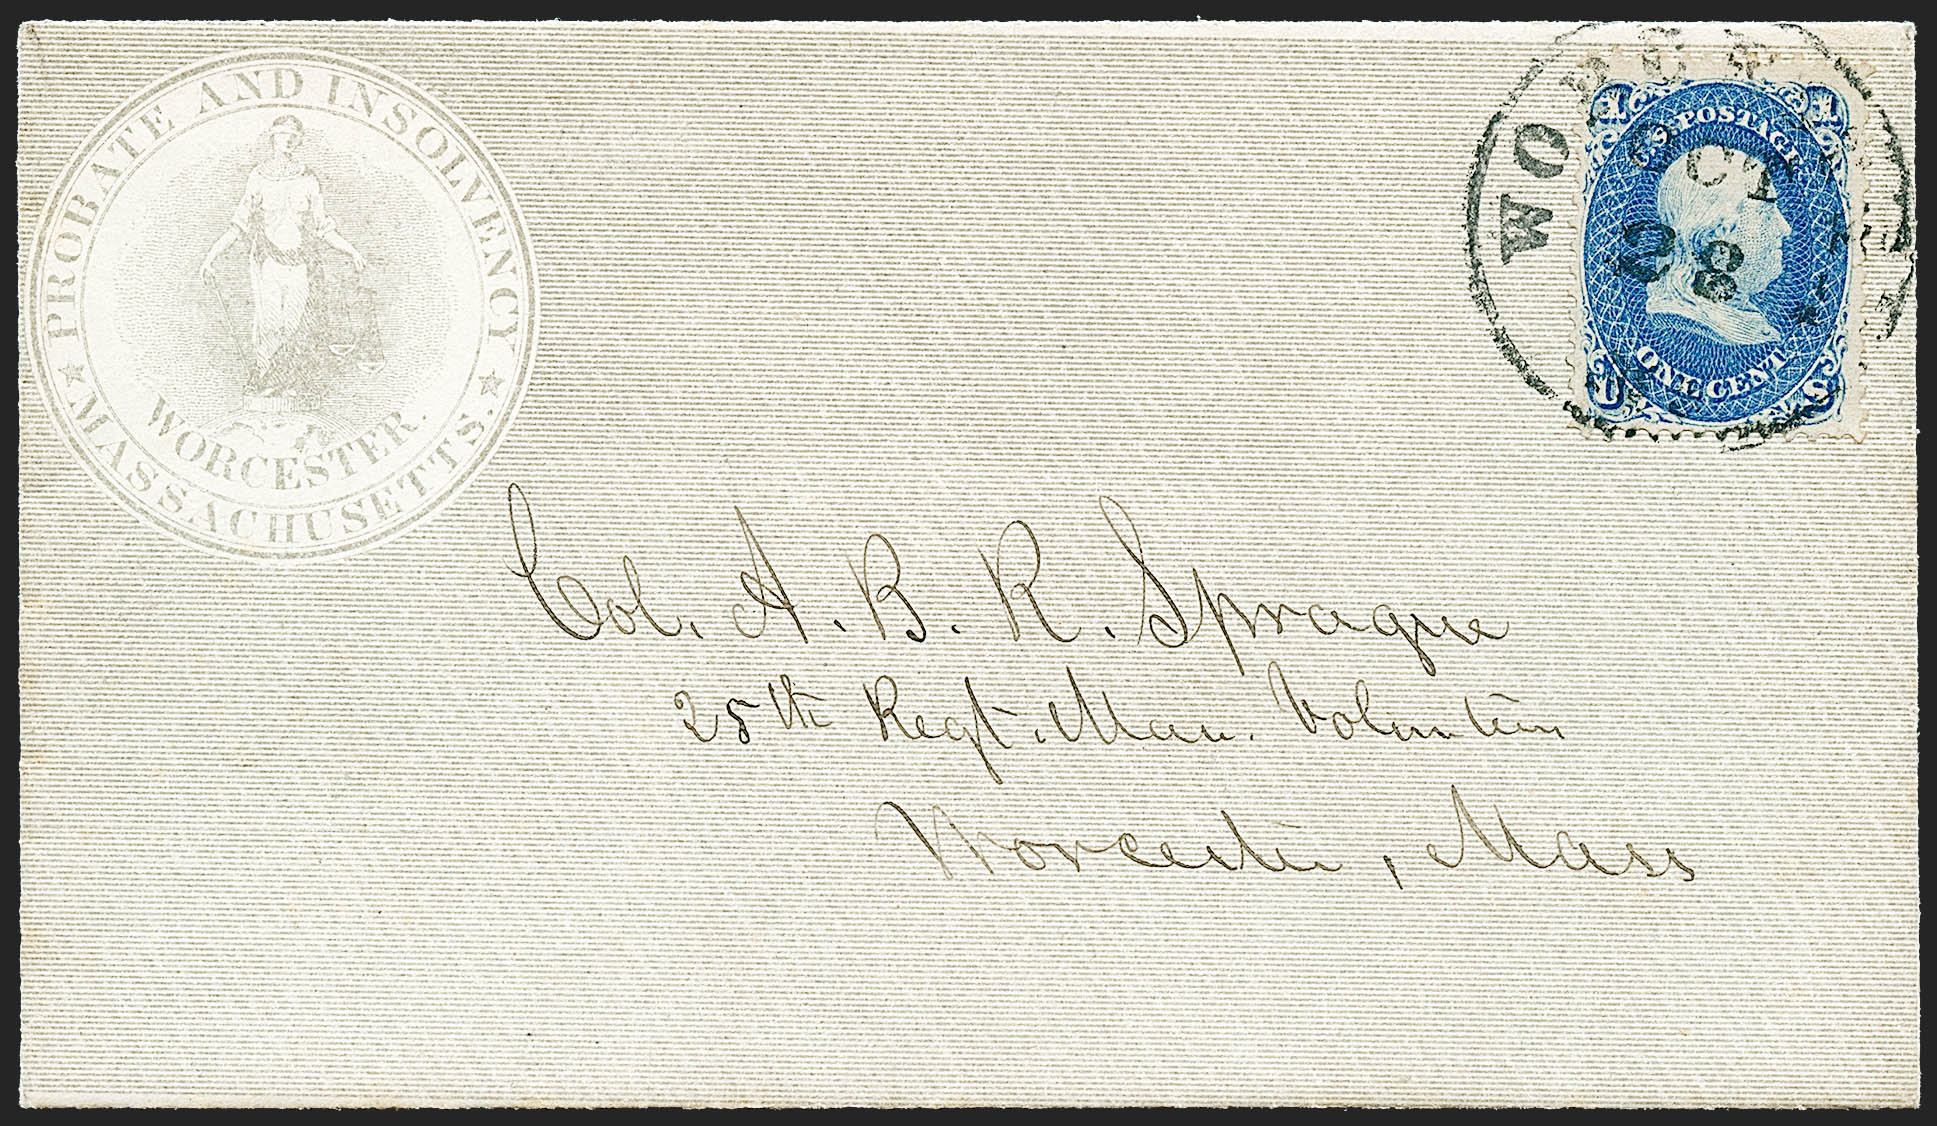 PROBATE AND INSOLVENCY
★ MASSACHUSETTS. ★
WORCESTER.
U.S. POSTAGE
1 1
ONE CENT
U S
WORCEST
Col. A. B. R. Sprague
25th Regt. Mass. Volunteers
Worcester, Mass